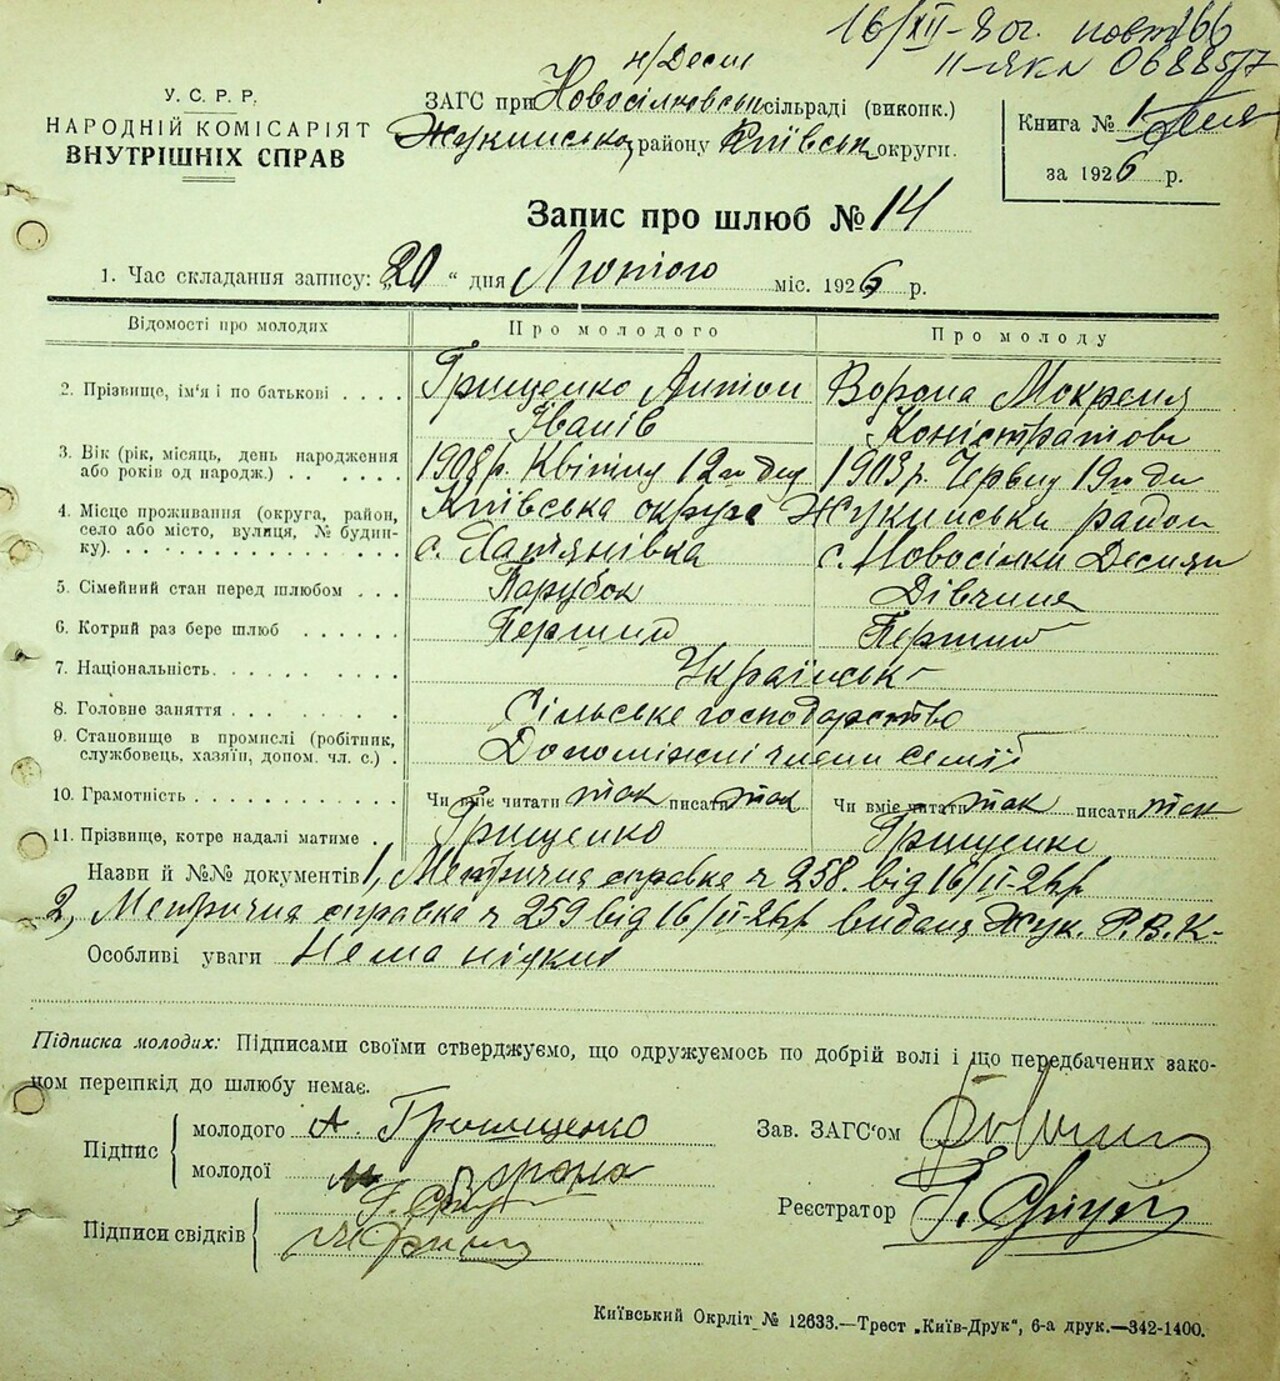 16/XII-80г. повт 166
II-ЯКА 068857
У. С. Р. Р.
НАРОДНІЙ КОМІСАРІЯТ
ВНУТРІШНІХ СПРАВ
н/Десні
ЗАГС при Новосілковськ сільраді (виконк.)
Жукинськ району Київськ округи.
Книга № 1
за 1926 р.
Запис про шлюб № 14
1. Час складання запису: „20“ дня Лютого міс. 1926 р.
Відомості про молодих Про молодого Про молоду
2. Прізвище, ім'я і по батькові Грищенко Антон Ворона Мокрена
Іванів Коністратова
3. Вік (рік, місяць, день народження або років од народж.) 1908 р. Квітня 12го дня 1903 р. Червня 19го дня
4. Місце проживання (округа, район, село або місто, вулиця, № будинку). Київська округа Жукинськи район
с. Новосілки Десняни
5. Сімейний стан перед шлюбом Парубок Дівчина
6. Котрий раз бере шлюб Перший Перший
7. Національність. Українськ
8. Головне заняття Сільське господарство
9. Становище в промислі (робітник, службовець, хазяїн, допом. чл. с.) Допоміжні члени семії
10. Грамотність Чи вміє читати так писати так Чи вміє читати так писати так
11. Прізвище, котре надалі матиме Грищенко Грищенко
Назви й №№ документів 1, Метрична справка ч 258. від 16/II-26р.
2, Метрична справка ч 259 від 16/II-26р. видана Жук. Р.В.К-
Особливі уваги Нема ніяких
Підписка молодих: Підписами своїми стверджуємо, що одружуємось по добрій волі і що передбачених зако-
ном перешкід до шлюбу немає.
Підпис молодого А. Грищенко
молодої М Ворона
Зав. ЗАГС'ом
Підписи свідків
Реєстратор
Київський Окрліт № 12633.—Трест „Київ-Друк“, 6-а друк.—342-1400.